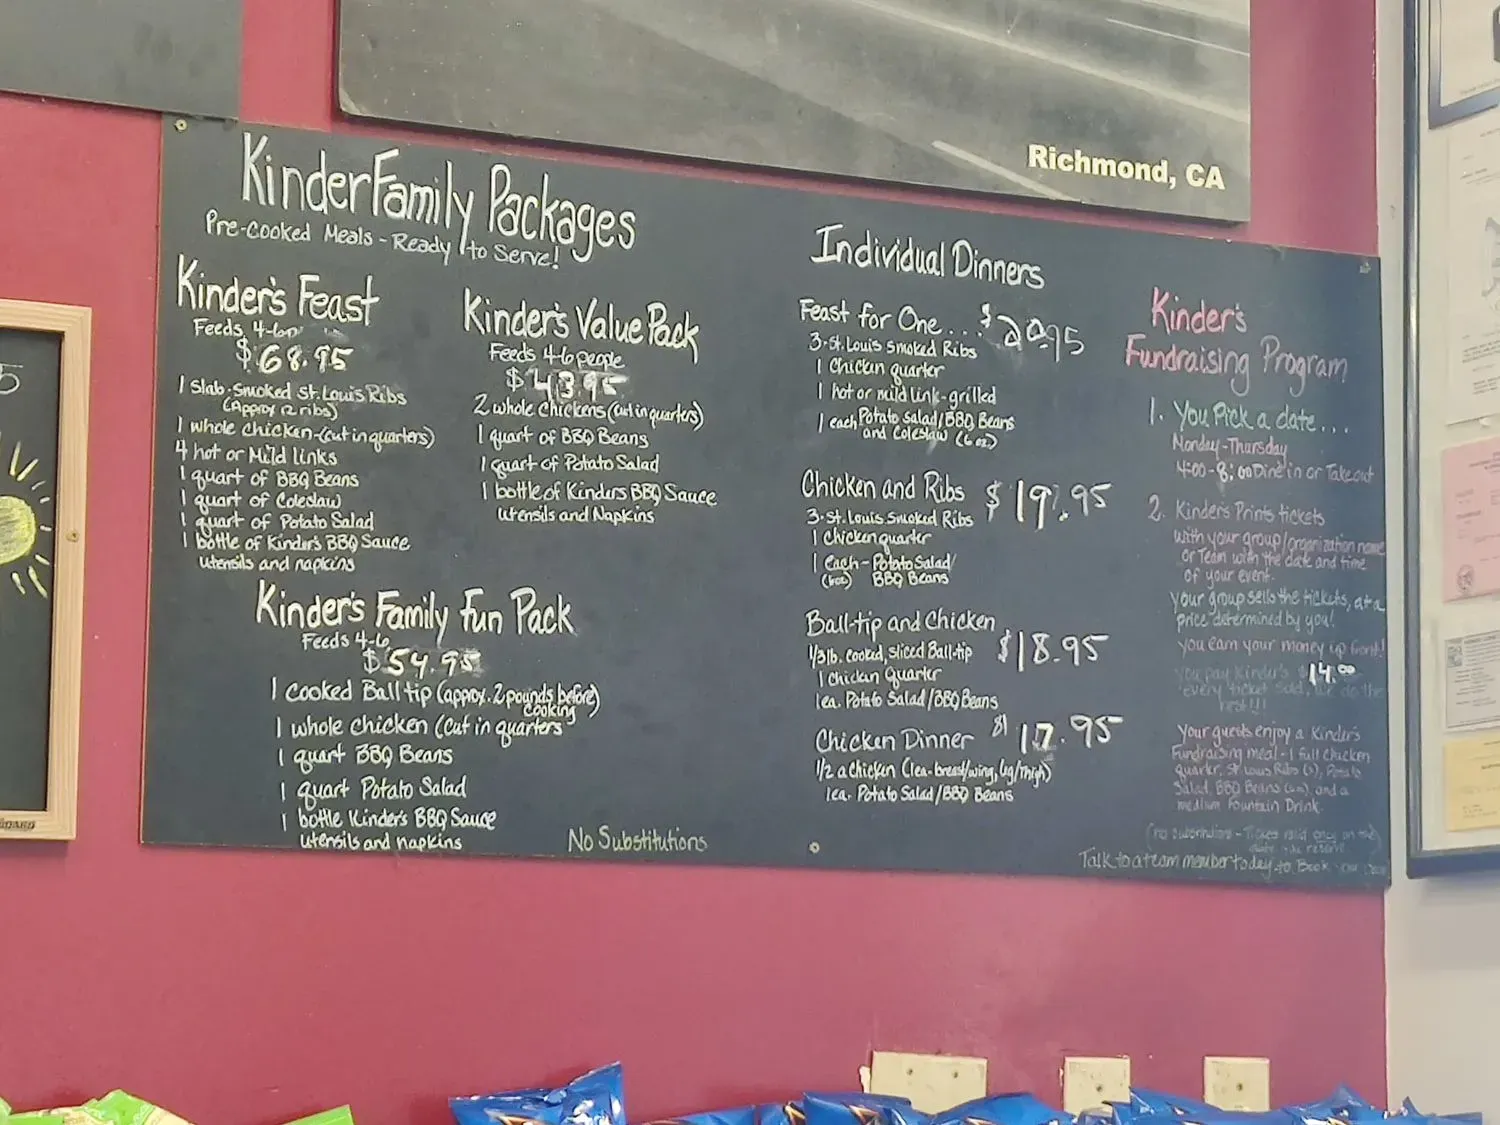 Richmond, CA
Kinder Family Packages
Pre-cooked Meals - Ready to Serve!
Kinder's Feast
Feeds 4-6
$68.95
1 slab-smoked St. Louis Ribs
(Approx 12 ribs)
1 whole chicken-(cut in quarters)
4 hot or Mild links
1 quart of BBQ Beans
1 quart of Coleslaw
1 quart of Potato Salad
1 bottle of Kinder's BBQ Sauce
utensils and napkins
Kinder's Value Pack
Feeds 4-6 people
$43.95
2 whole chickens (cut in quarters)
1 quart of BBQ Beans
1 quart of Potato Salad
1 bottle of Kinders BBQ Sauce
utensils and Napkins
Kinder's Family Fun Pack
Feeds 4-6
$54.95
1 cooked Ball tip (approx. 2 pounds before)
cooking
1 whole chicken (cut in quarters
1 quart BBQ Beans
1 quart Potato Salad
1 bottle Kinder's BBQ Sauce
utensils and napkins
No Substitutions
Individual Dinners
Feast for One... $20.95
3-St. Louis Smoked Ribs
1 chicken quarter
1 hot or mild link-grilled
1 each Potato Salad/BBQ Beans
and Coleslaw (6 oz)
Chicken and Ribs $19.95
3-St. Louis Smoked Ribs
1 chicken quarter
1 each - Potato Salad/
BBQ Beans
Ball-tip and Chicken $18.95
1/3 lb. cooked, sliced Ball-tip
1 chicken Quarter
1 ea. Potato Salad/BBQ Beans
Chicken Dinner $17.95
1/2 a chicken (1 ea-breast/wing, leg/thigh)
1 ea. Potato Salad/BBQ Beans
Kinder's
Fundraising Program
1. You Pick a date...
Monday-Thursday
4:00-8:00 Dine in or Takeout
2. Kinder's Prints tickets
with your group/organization name
or Team with the date and time
of your event.
your group sells the tickets, at a
price determined by you!
you earn your money up front!
You pay Kinder's $14.00
every ticket sold, we do the
rest!!!
Your guests enjoy a Kinder's
Fundraising meal - 1 full chicken
quarter, St Louis Ribs (2), Potato
Salad, BBQ Beans and a
medium Fountain Drink.
(no substitutions - Tickets valid only on the
date
Talk to a team member today to Book
5